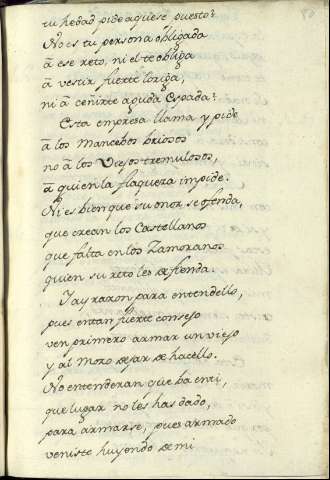 tu hedad pide aquese puesto?
No es tu persona obligada
a ese reto, ni el te obliga
a vestir fuerte loriga,
ni a ceñirte aguda espada?
Esta empresa llama y pide
a los mancebos briosos
no a los Viejos tremulosos,
a quien la flaqueza impide.
Ni es bien que su onor se ofenda,
que crean los Castellanos
que falta en los Zamoranos
quien su reto les defienda.
Y ay razon para entendello,
pues en tan fuerte consejo
ven primero armar un viejo
y al Mozo dejar de hacello.
No entenderan que ha en ti,
que lugar no les has dado,
para armarse, pues armado
veniste huyendo de mi